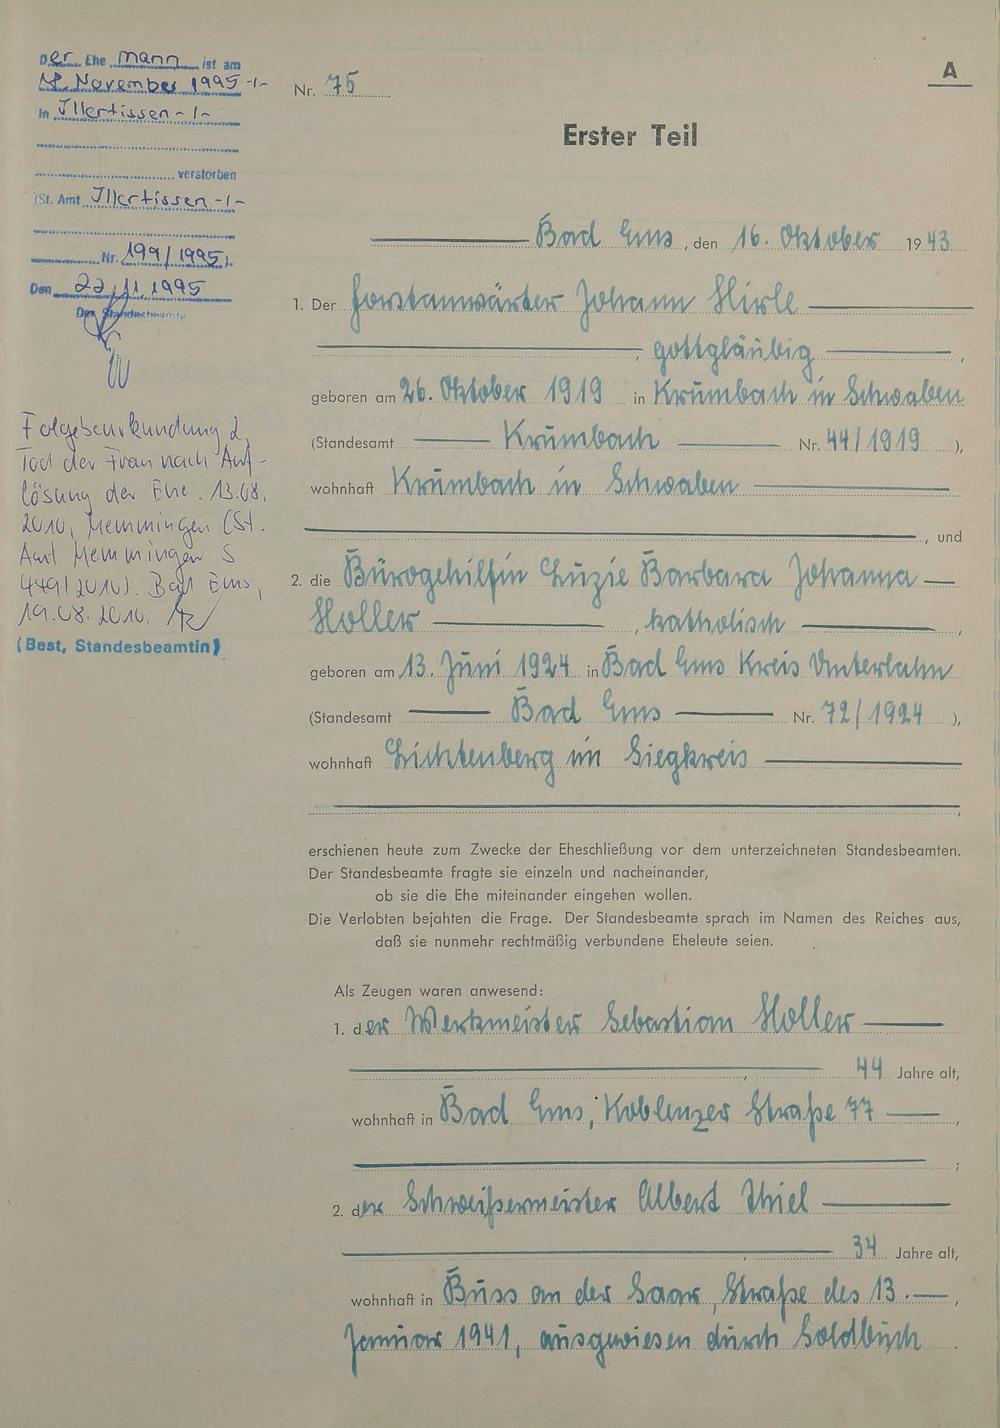 Der Ehe mann ist am
November 1995 -/-
in Illertissen -/-
verstorben
(St. Amt Illertissen -/-
Nr. 199/1995).
Den 22.11.1995
Der Standesbeamte
Folgebeurkundung 2,
Tod der Frau nach Auf-
lösung der Ehe. 13.08.
2010, Memmingen (St.
Amt Memmingen S
449/2010). Bad Ems,
19.08.2010.
(Best, Standesbeamtin)
A
Nr. 75
Erster Teil
Bad Ems, den 16. Oktober 1943
1. Der Forstanwärter Johann Hirle
, gottgläubig ,
geboren am 26. Oktober 1919 in Krumbach in Schwaben
(Standesamt Krumbach Nr. 44/1919 ),
wohnhaft Krumbach in Schwaben
, und
2. die Bürogehilfin Luzie Barbara Johanna
Holler , katholisch ,
geboren am 13. Juni 1924 in Bad Ems Kreis Unterlahn
(Standesamt Bad Ems Nr. 72/1924 ),
wohnhaft Lichtenberg im Siegkreis
,
erschienen heute zum Zwecke der Eheschließung vor dem unterzeichneten Standesbeamten.
Der Standesbeamte fragte sie einzeln und nacheinander,
ob sie die Ehe miteinander eingehen wollen.
Die Verlobten bejahten die Frage. Der Standesbeamte sprach im Namen des Reiches aus,
daß sie nunmehr rechtmäßig verbundene Eheleute seien.
Als Zeugen waren anwesend:
1. der Werkmeister Sebastian Holler
, 44 Jahre alt,
wohnhaft in Bad Ems, Koblenzer Straße 77 ,
;
2. der Schweißermeister Albert Thiel
, 34 Jahre alt,
wohnhaft in Buss an der Saar, Straße des 13. ,
Januar 1941, ausgewiesen durch Soldbuch